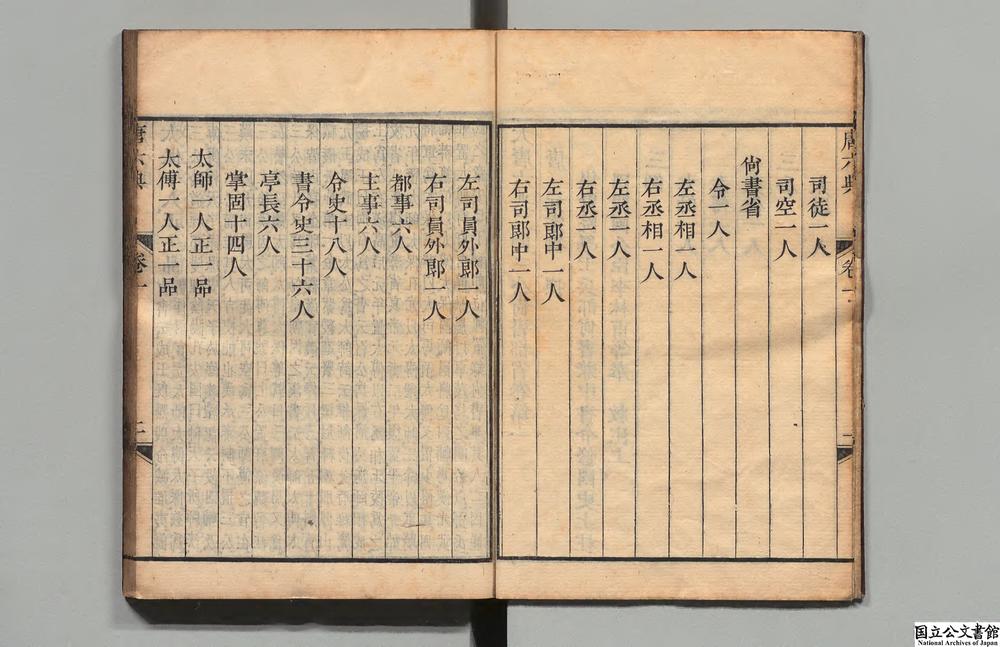 司徒一人
司空一人
尙書省
令一人
左丞相一人
右丞相一人
左丞一人
右丞一人
左司郎中一人
右司郎中一人
左司員外郎一人
右司員外郎一人
都事六人
主事六人
令史十八人
書令史三十六人
亭長六人
掌固十四人
太師一人正一品
太傅一人正一品
唐六典
卷一
二
国立公文書館
National Archives of Japan